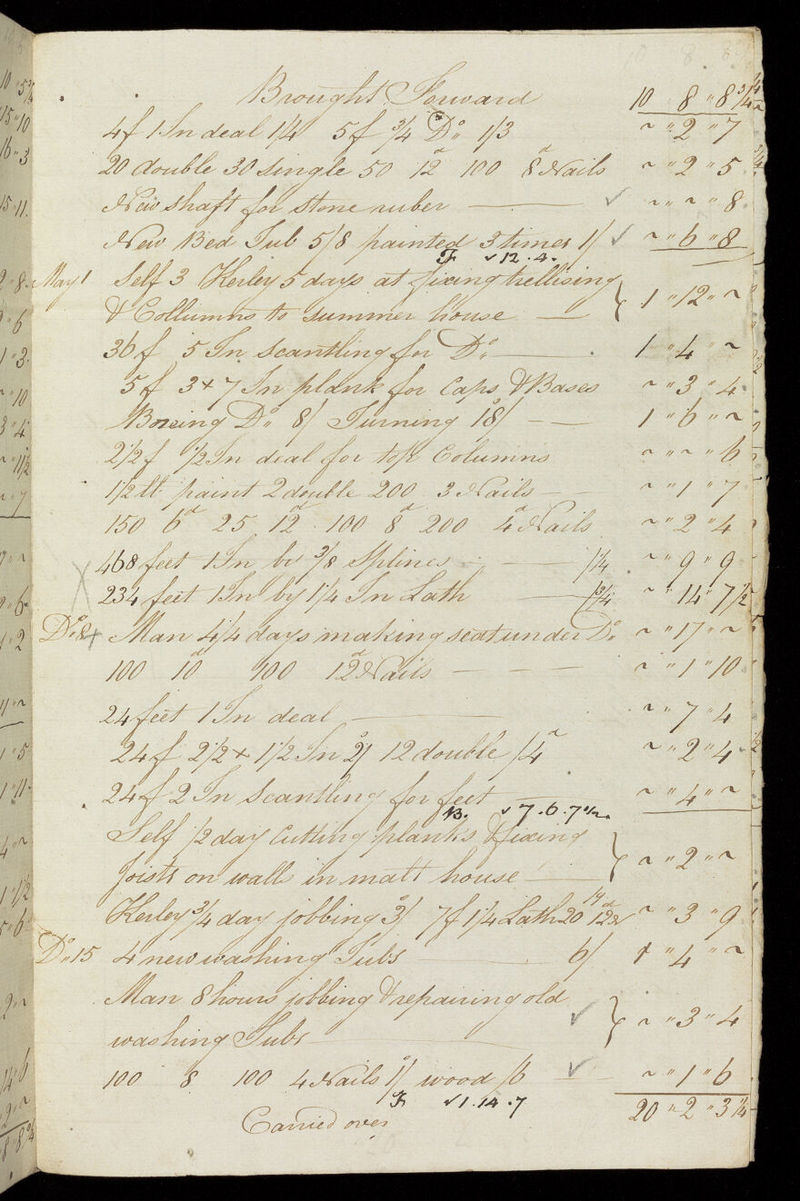 Brought Forward 10 " 8 " 8 3/4
4f 1 In deal 1/4 5f 3/4 Do 1/3 ~ " 2 " 7
20 double 30 single 50 12d 100 8d Nails ~ " 2 " 5
New shaft for stone ruber ✓ ~ " ~ " 8
New Bed Tub 5/8 painted 3 times 1/ ✓ ~ " 6 " 8
F ✓ 12 . 4 .
May 1 Self 3 Kerley 5 days at fixing trellising
& Collumns to summer house 1 " 12 " ~
36 f 5 In scantling for Do 1 " 4 " ~
5 f 3 + 7 In plank for Caps & Bases ~ " 3 " 4
Boreing Do 8/ Turning 18/ 1 " 6 " ~
2 1/2 f 1/2 In deal for top Columns ~ " ~ " 6
1/2 lt paint 2 double 200 3 Nails ~ " 1 " 7
150 6d 25 12d 100 8d 200 4d Nails ~ " 2 " 4
468 feet 1 In by 3/8 Splines /1/4 ~ " 9 " 9
234 feet 1 In by 1 1/4 In Lath /3/4 ~ " 14 " 7 1/2
Do 8 Man 4 1/4 days making seat under Do ~ " 17 " ~
100 10d 100 12d Nails ~ " 1 " 10
24 feet 1 In deal ~ " 7 " 4
24 f 2 1/2 + 1 1/2 In 2/ 12 double /4 ~ " 2 " 4
24 f 2 In Scantling for feet ~ " 4 " ~
B. ✓ 7 . 6 . 7 1/2 .
Self 1/2 day Cutting planks & fixing
Joists on wall in malt house ~ " 2 " ~
Kerley 3/4 day jobbing 3/ 7f 1 1/4 Lath 20 12d ~ " 3 " 9
Do 15 4 new washing Tubs 6/ 1 " 4 " ~
Man 8 hours jobbing & repairing old
washing Tubs ✓ ~ " 3 " 4
100 8 100 4 Nails 1/ wood /6 ✓ ~ " 1 " 6
F ✓ 1 . 14 . 7
Carried over 20 " 2 " 3 1/4